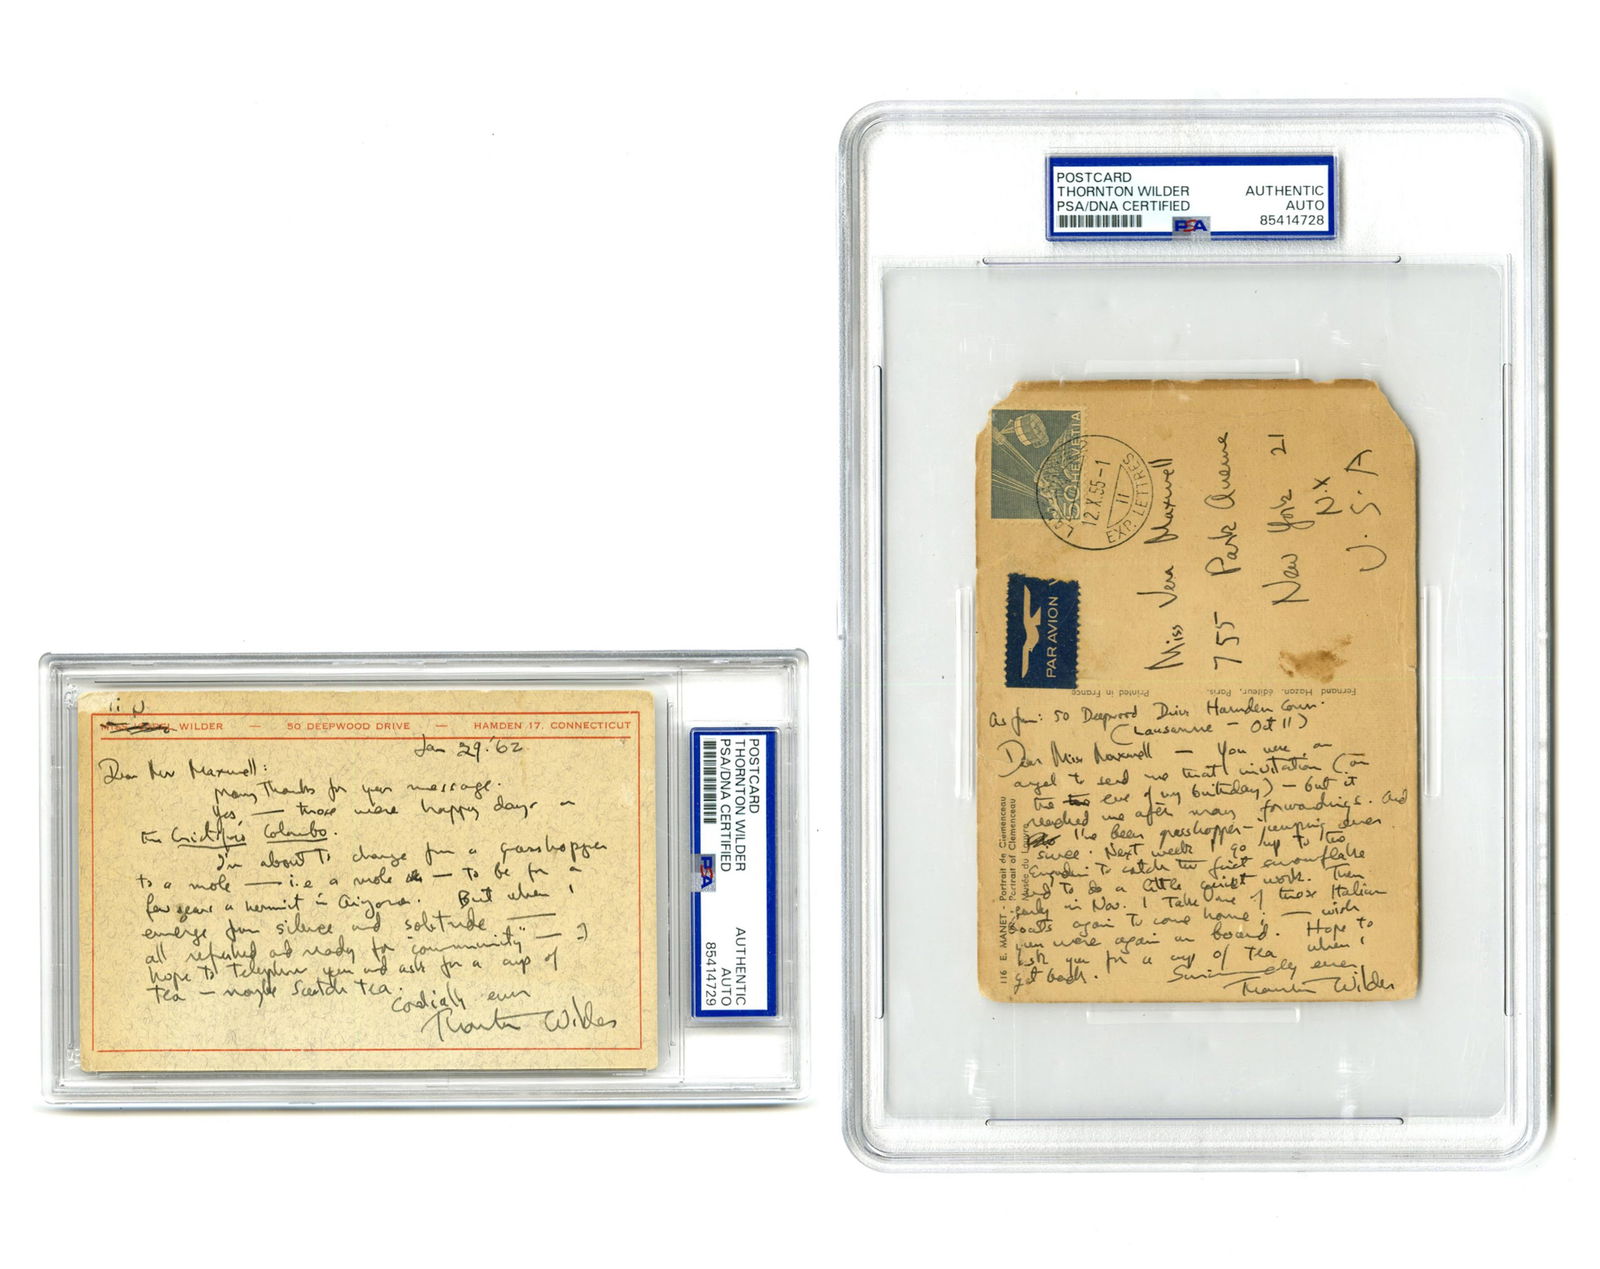 WILDER — 50 DEEPWOOD DRIVE — HAMDEN 17, CONNECTICUT
Jan 29. '62
Dear Maxwell:
Many thanks for your message.
Yes — those were happy days on
the Cristoforo Colombo.
I'm about to change from a grasshopper
to a mole — i.e a mole — to be for a
few years a hermit in Arizona. But when I
emerge from silence and solitude —
all refreshed and ready for "community" — I
hope to telephone you and ask for a cup of
tea — maybe Scotch tea.
Cordially ever
Thornton Wilder
POSTCARD
THORNTON WILDER
PSA/DNA CERTIFIED
PSA
AUTHENTIC
AUTO
85414729
POSTCARD
THORNTON WILDER
PSA/DNA CERTIFIED
PSA
AUTHENTIC
AUTO
85414728
50 HELVETIA
12.X.55-1
11
EXP. LETTRES
PAR AVION
Miss Vera Maxwell
755 Park Avenue
New York 21
N.Y
U.S.A
Fernand Hazan, éditeur, Paris.
Printed in France
116 E. MANET - Portrait de Clemenceau
Portrait of Clemenceau
Musée du Louvre
As from: 50 Deepwood Drive Hamden Conn.
(Lausanne — Oct 11)
Dear Miss Maxwell — You were an
angel to send me that invitation (on
the eve of my birthday) — but it
reached me after many forwardings. And
I've been grasshopper-jumping ever
since. Next week go up to the
Engadin to catch the first snowflake
and to do a little quiet work. Then
early in Nov. I take one of those Italian
boats again to come home; — wish
you were again on board. Hope to
ask you for a cup of tea when I
get back.
Sincerely ever
Thornton Wilder